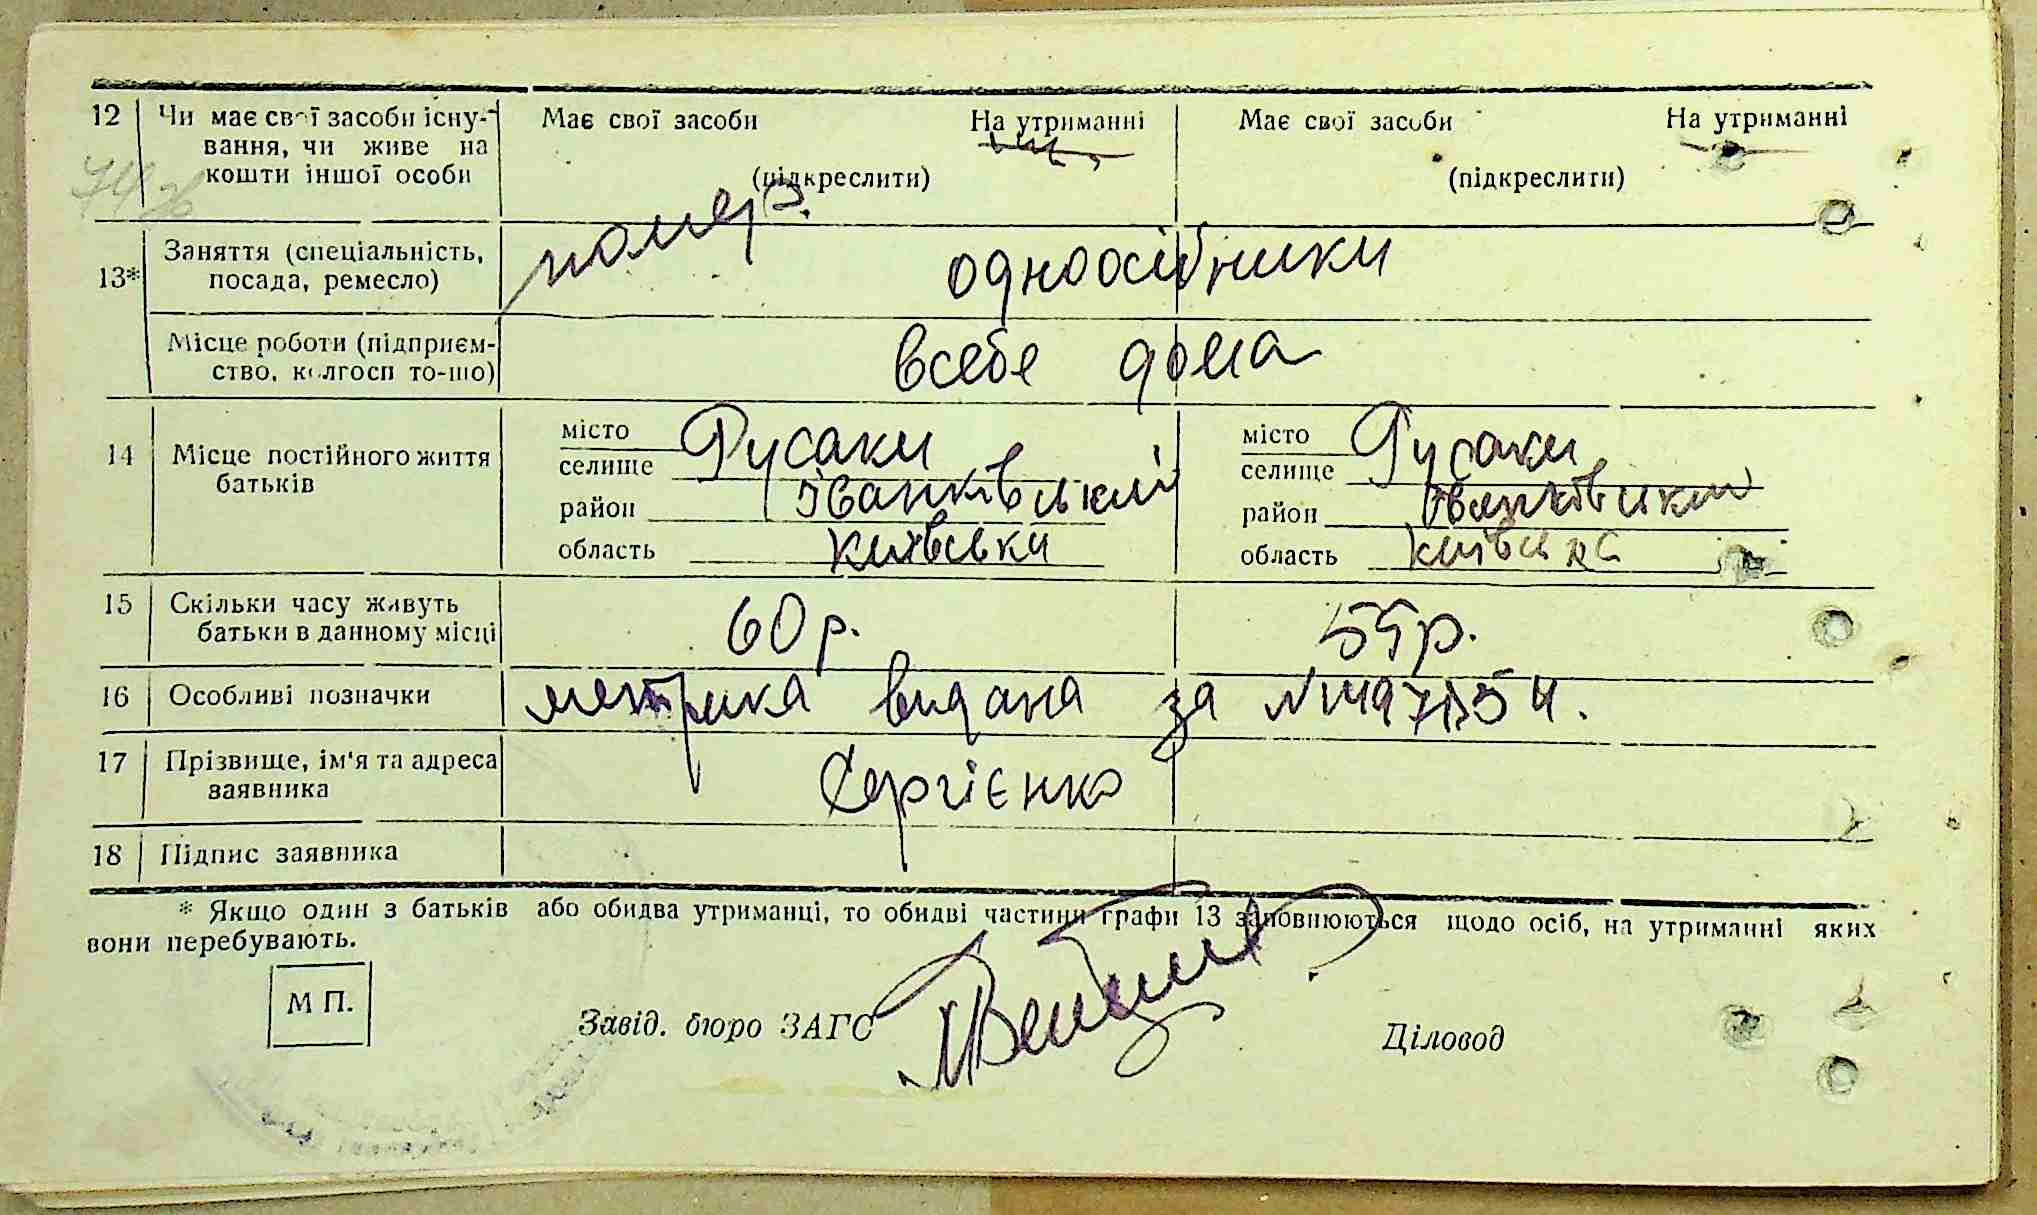 12 Чи має свої засоби існу- Має свої засоби На утриманні Має свої засоби На утриманні
вання, чи живе на
кошти іншої особи (підкреслити) (підкреслити)
помер.
13* Заняття (спеціальність,
посада, ремесло) одноосібники
Місце роботи (підприєм-
ство, колгосп то-що) всебе дома
14 Місце постійного життя батьків
місто Русаки місто Русаки
селище селище
район Іванківський район Іванківський
область київська область київська
15 Скільки часу живуть
батьки в данному місці 60 р. 55 р.
16 Особливі позначки метрика видана за
17 Прізвище, ім'я та адреса
заявника Сергієнко
18 Підпис заявника
* Якщо один з батьків або обидва утриманці, то обидві частини графи 13 заповнюються щодо осіб, на утриманні яких
вони перебувають.
М П.
Завід. бюро ЗАГС Діловод